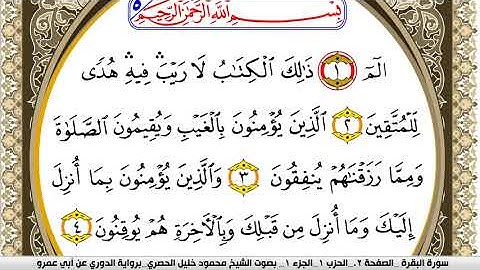 بِسْمِ اللَّهِ الرَّحْمَٰنِ الرَّحِيمِ
الٓمٓ ١ ذَٰلِكَ الْكِتَابُ لَا رَيْبَ فِيهِ هُدًى
لِلْمُتَّقِينَ ٢ الَّذِينَ يُؤْمِنُونَ بِالْغَيْبِ وَيُقِيمُونَ الصَّلَوٰةَ
وَمِمَّا رَزَقْنَاهُمْ يُنفِقُونَ ٣ وَالَّذِينَ يُؤْمِنُونَ بِمَا أُنزِلَ
إِلَيْكَ وَمَا أُنزِلَ مِن قَبْلِكَ وَبِالْآخِرَةِ هُمْ يُوقِنُونَ ٤
سورة البقرة _الصفحة ٢_ الحزب ١_ الجزء ١_ بصوت الشيخ محمود خليل الحصري_برواية الدوري عن أبي عمرو